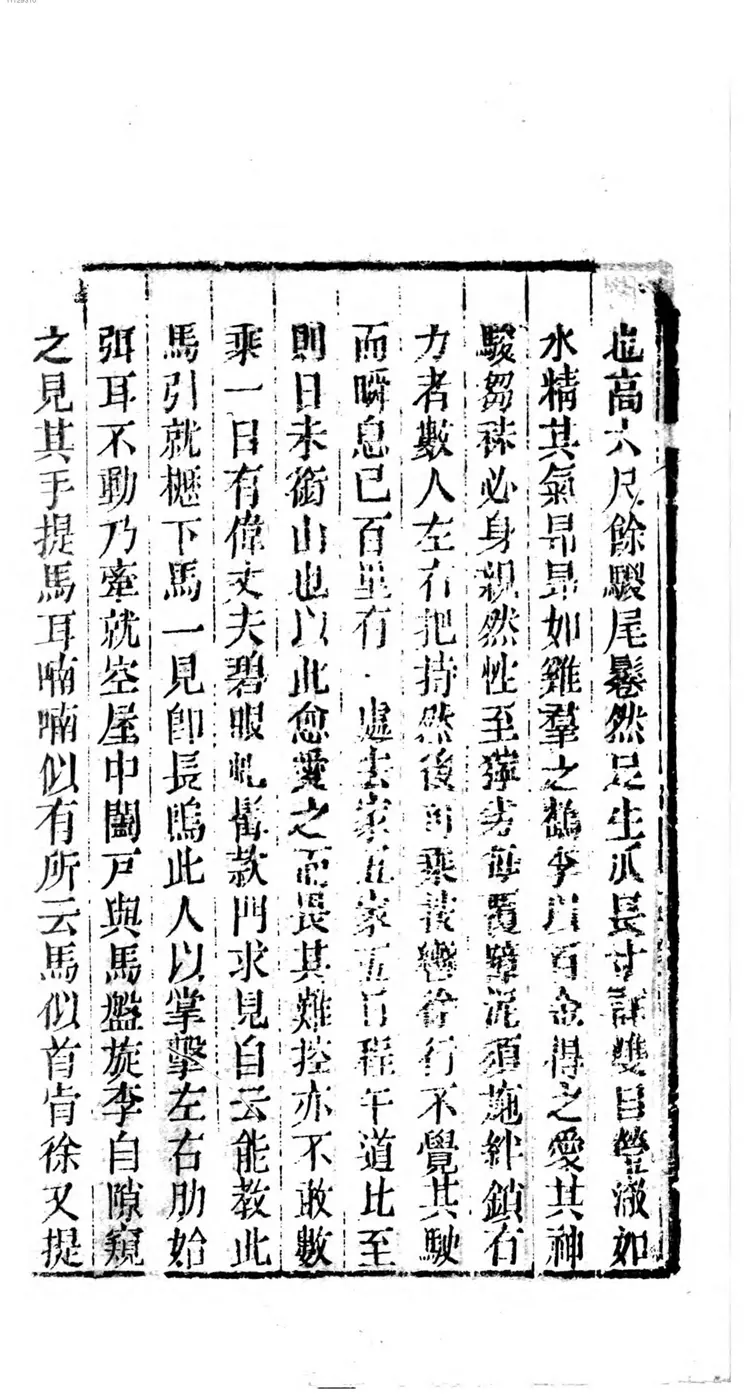 也高六尺餘騣尾鬈然足生爪長寸許雙目瑩澈如
水精其氣昂昂如雞羣之鶴李以百金得之愛其神
駿芻秣必身親然性至獰劣每覆障泥須施絆鎖有
力者數人左右把持然後可乘按轡徐行不覺其駛
而瞬息已百里有 處去家五 五日程午道比至
則日未銜山也以此愈愛之而畏其難控亦不敢數
乘一日有偉丈夫碧眼虬髯款門求見自云能教此
馬引就櫪下馬一見即長鳴此人以掌擊左右肋始
弭耳不動乃牽就空屋中闔戸與馬盤旋李自隙窺
之見其手提馬耳喃喃似有所云馬似首肯徐又提